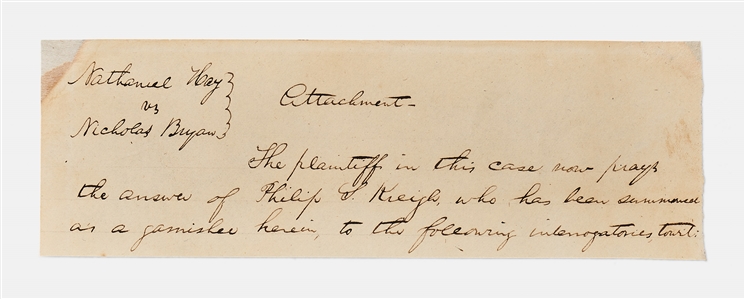 Nathaniel Hay
vs
Nicholas Bryan
Attachment—
The plaintiff in this case now prays
the answer of Philip S. Kreigh, who has been summoned
as a garnishee herein, to the following interrogatories, towit: